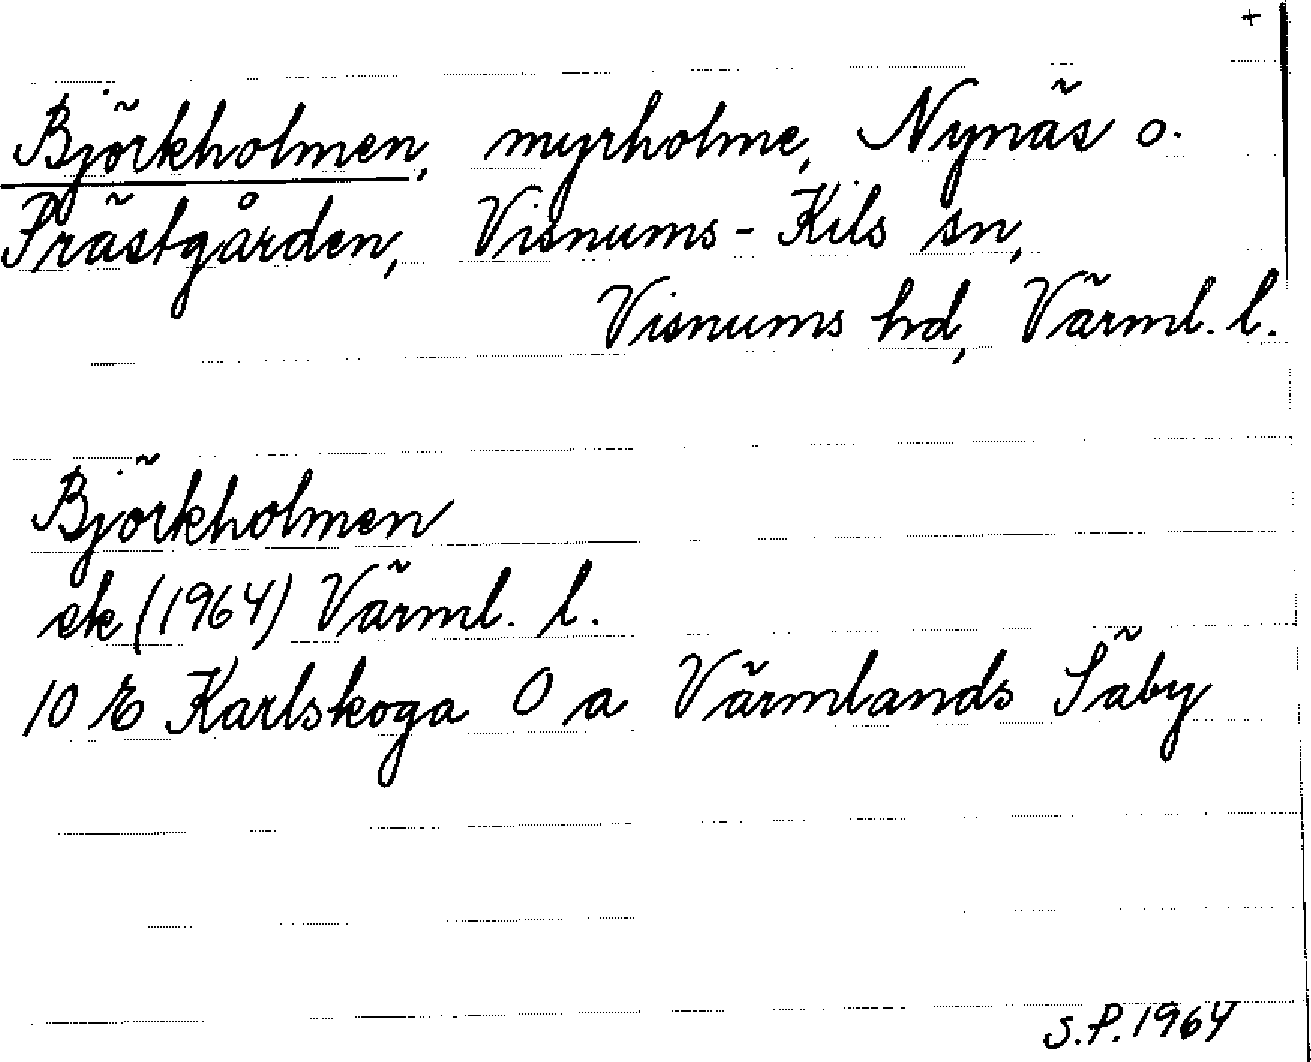 +
Björkholmen, myrholme, Nynäs o.
Prästgården, Visnums-Kils sn,
Visnums hd, Värml. l.
Björkholmen
ek (1964) Värml. l.
10 E Karlskoga O a Värmlands Säby
S.P. 1964